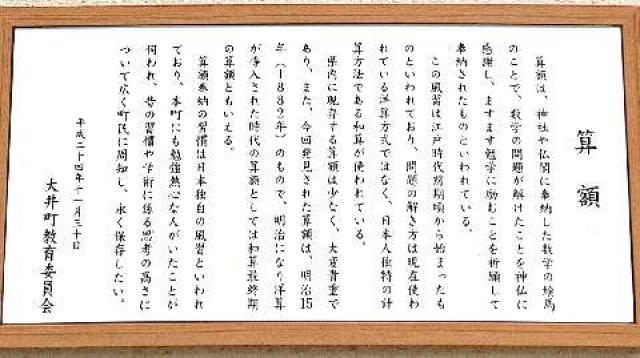 算額
算額は、神社や仏閣に奉納した数学の絵馬
のことで、数学の問題が解けたことを神仏に
感謝し、ますます勉学に励むことを祈願して
奉納されたものといわれている。
この風習は江戸時代前期頃から始まったも
のといわれており、問題の解き方は現在使わ
れている洋算方式ではなく、日本人独特の計
算方法である和算が使われている。
県内に現存する算額は少なく、大変貴重で
あり、また、今回発見された算額は、明治15
年(1882年)のもので、明治になり洋算
が導入された時代の算額としては和算最終期
の算額ともいえる。
算額奉納の習慣は日本独自の風習といわれ
ており、本町にも勉強熱心な人がいたことが
伺われ、昔の習慣や学術に係る思考の高さに
ついて広く町民に周知し、永く保存したい。
平成二十四年十一月三十日
大井町教育委員会